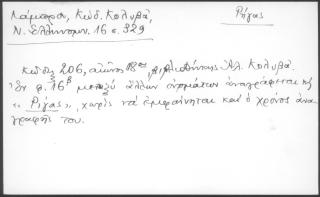 Λάμπρου, Κώδ. Κολυβᾶ,
Ν. Ἑλληνομν. 16 σ. 329
Ρήγας
Κώδιξ 206, αἰῶνος 18ου, βιβλιοθήκης Ἀλ. Κολυβᾶ.
Ἐν φ. 16β μεταξὺ ἄλλων ὀνομάτων ἀναγράφεται καὶ
«Ρήγας», χωρὶς νὰ ἐμφαίνηται καὶ ὁ χρόνος ἀνα-
γραφῆς του.